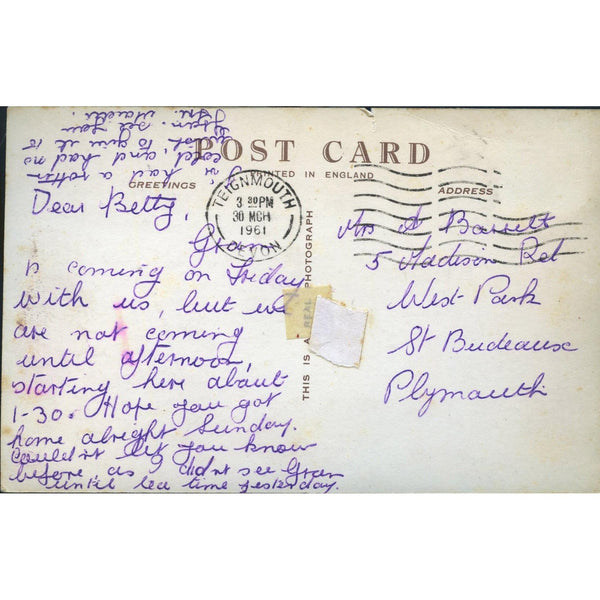 POST CARD
PRINTED IN ENGLAND
GREETINGS
ADDRESS
TEIGNMOUTH
3 30 PM
30 MCH
1961
DEVON
THIS IS A REAL PHOTOGRAPH
Dear Betty,
Gran
is coming on Friday
with us, but we
are not coming
until afternoon,
starting here about
1-30. Hope you got
home alright Sunday.
Couldn't let you know
before, as I didnt see Gran
until tea time yesterday.
had a rotten
cold, and had no
to give it to
Gran. See you
Fri.
Mrs A Bassett
5 Madison Rd
West Park
St Budeaux
Plymouth